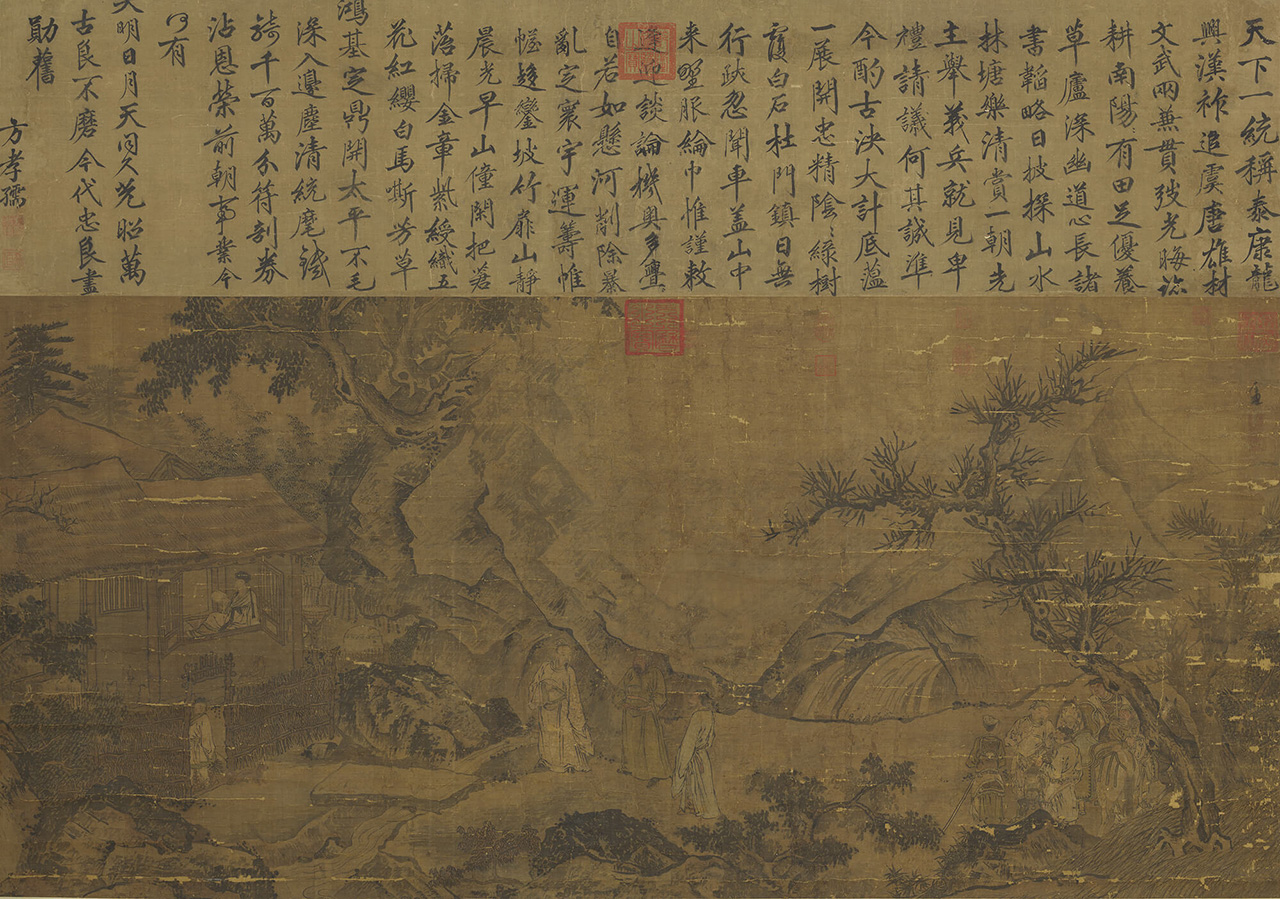 天下一統稱泰康龍
興漢祚追虞唐雄材
文武兩兼貫發光晦跡
耕南陽有田足優養
草廬深幽道心長諸
書韜略日披探山水
林塘樂清賞一朝先
主舉義兵就見卑
禮請議何其誠準
今酌古決大計底蘊
一展開忠精陰々綠樹
覆白石杜門鎮日無
行跡忽聞車蓋山中
来野服綸巾惟謹敕
逢迎談論機奧多亹
自若如懸河削除暴
亂定寰宇運籌帷
幄趍鑾坡竹扉山靜
晨光早山僮閑把著
落掃金章紫綬織五
花紅纓白馬嘶芳草
鴻基定鼎開太平不毛
深入邊塵清統麾鉞
騎千百萬分符剖券
沾恩榮前朝事業今
何有
大明日月天同久光昭萬
古良不磨今代忠良盡
勛舊
方孝孺